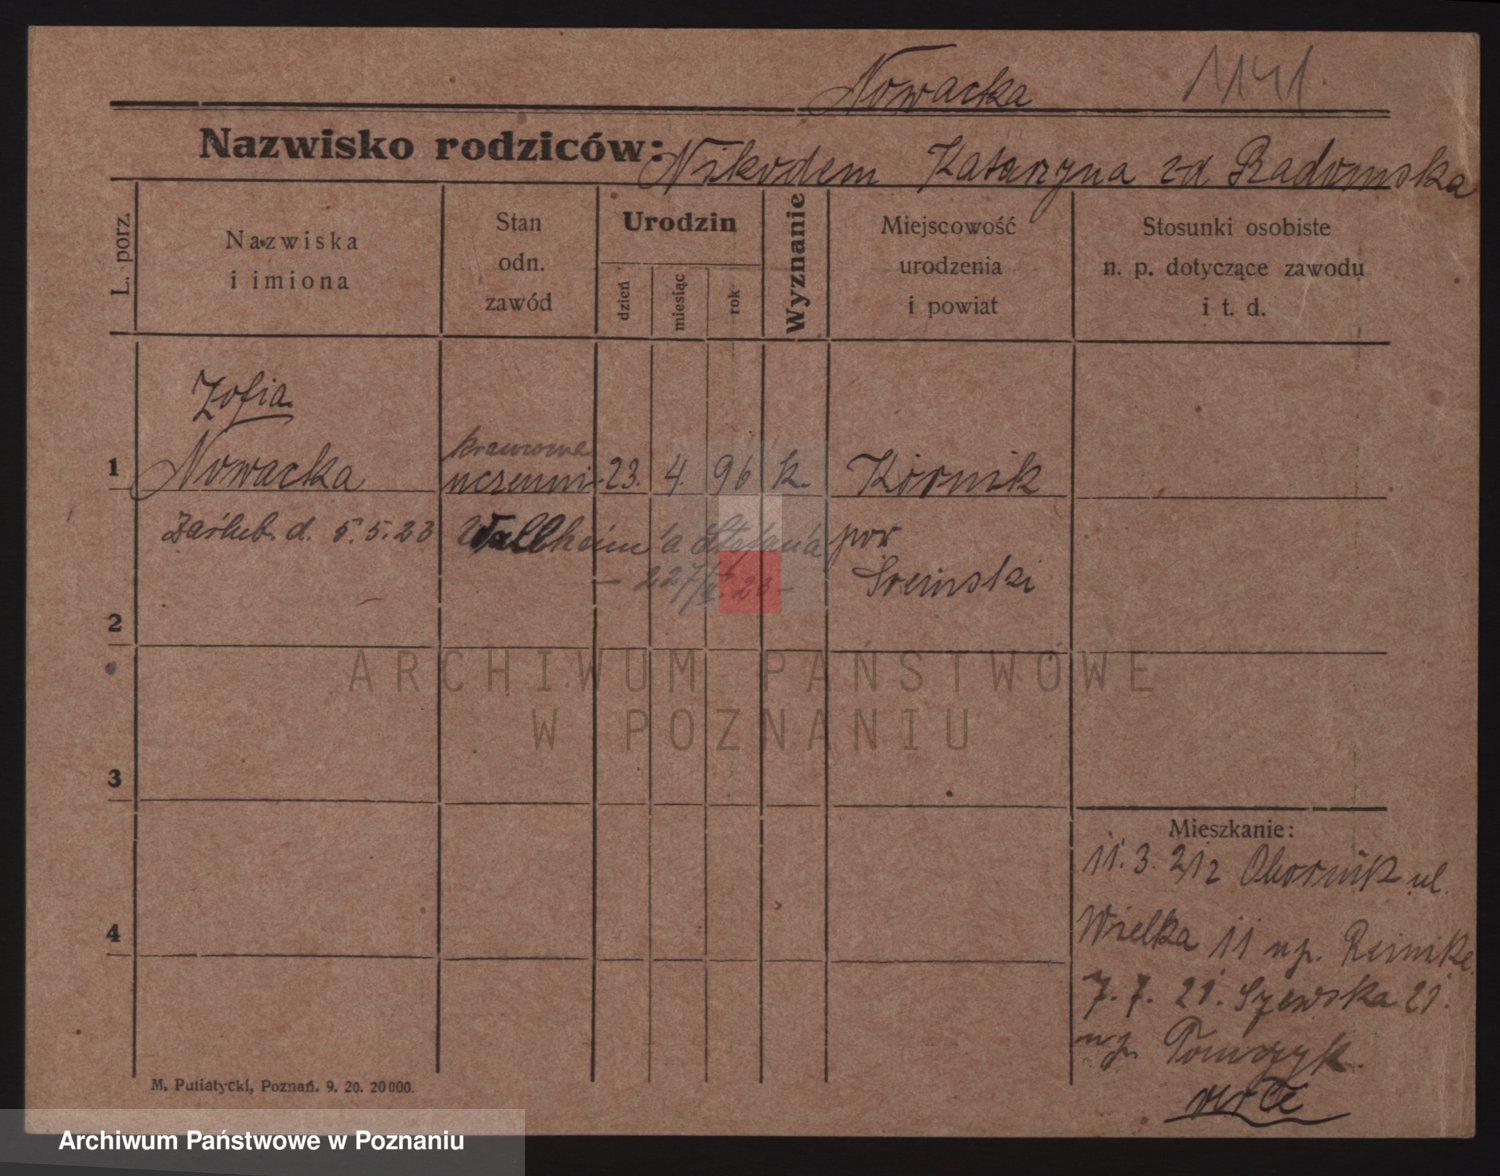 Nowacka 1141.
Nazwisko rodziców: Nikodem Katarzyna zd Radomska
L. porz.
Nazwiska
i imiona
Stan
odn.
zawód
Urodzin
dzień
miesiąc
rok
Wyznanie
Miejscowość
urodzenia
i powiat
Stosunki osobiste
n. p. dotyczące zawodu
i t. d.
Zofia
1 Nowacka uczenni 23. 4. 96 k. Kórnik
Zaślub. d. 5.5.23 a Stefana pow
Śremski
2
ARCHIWUM PAŃSTWOWE
W POZNANIU
3
4
Mieszkanie:
11. 3. 212 Obornik ul.
Wielka 11 up. Reinike
7. 7. 21. Szewska 21.
Tomczyk.
M. Putiatycki, Poznań. 9. 20. 20000.
Archiwum Państwowe w Poznaniu